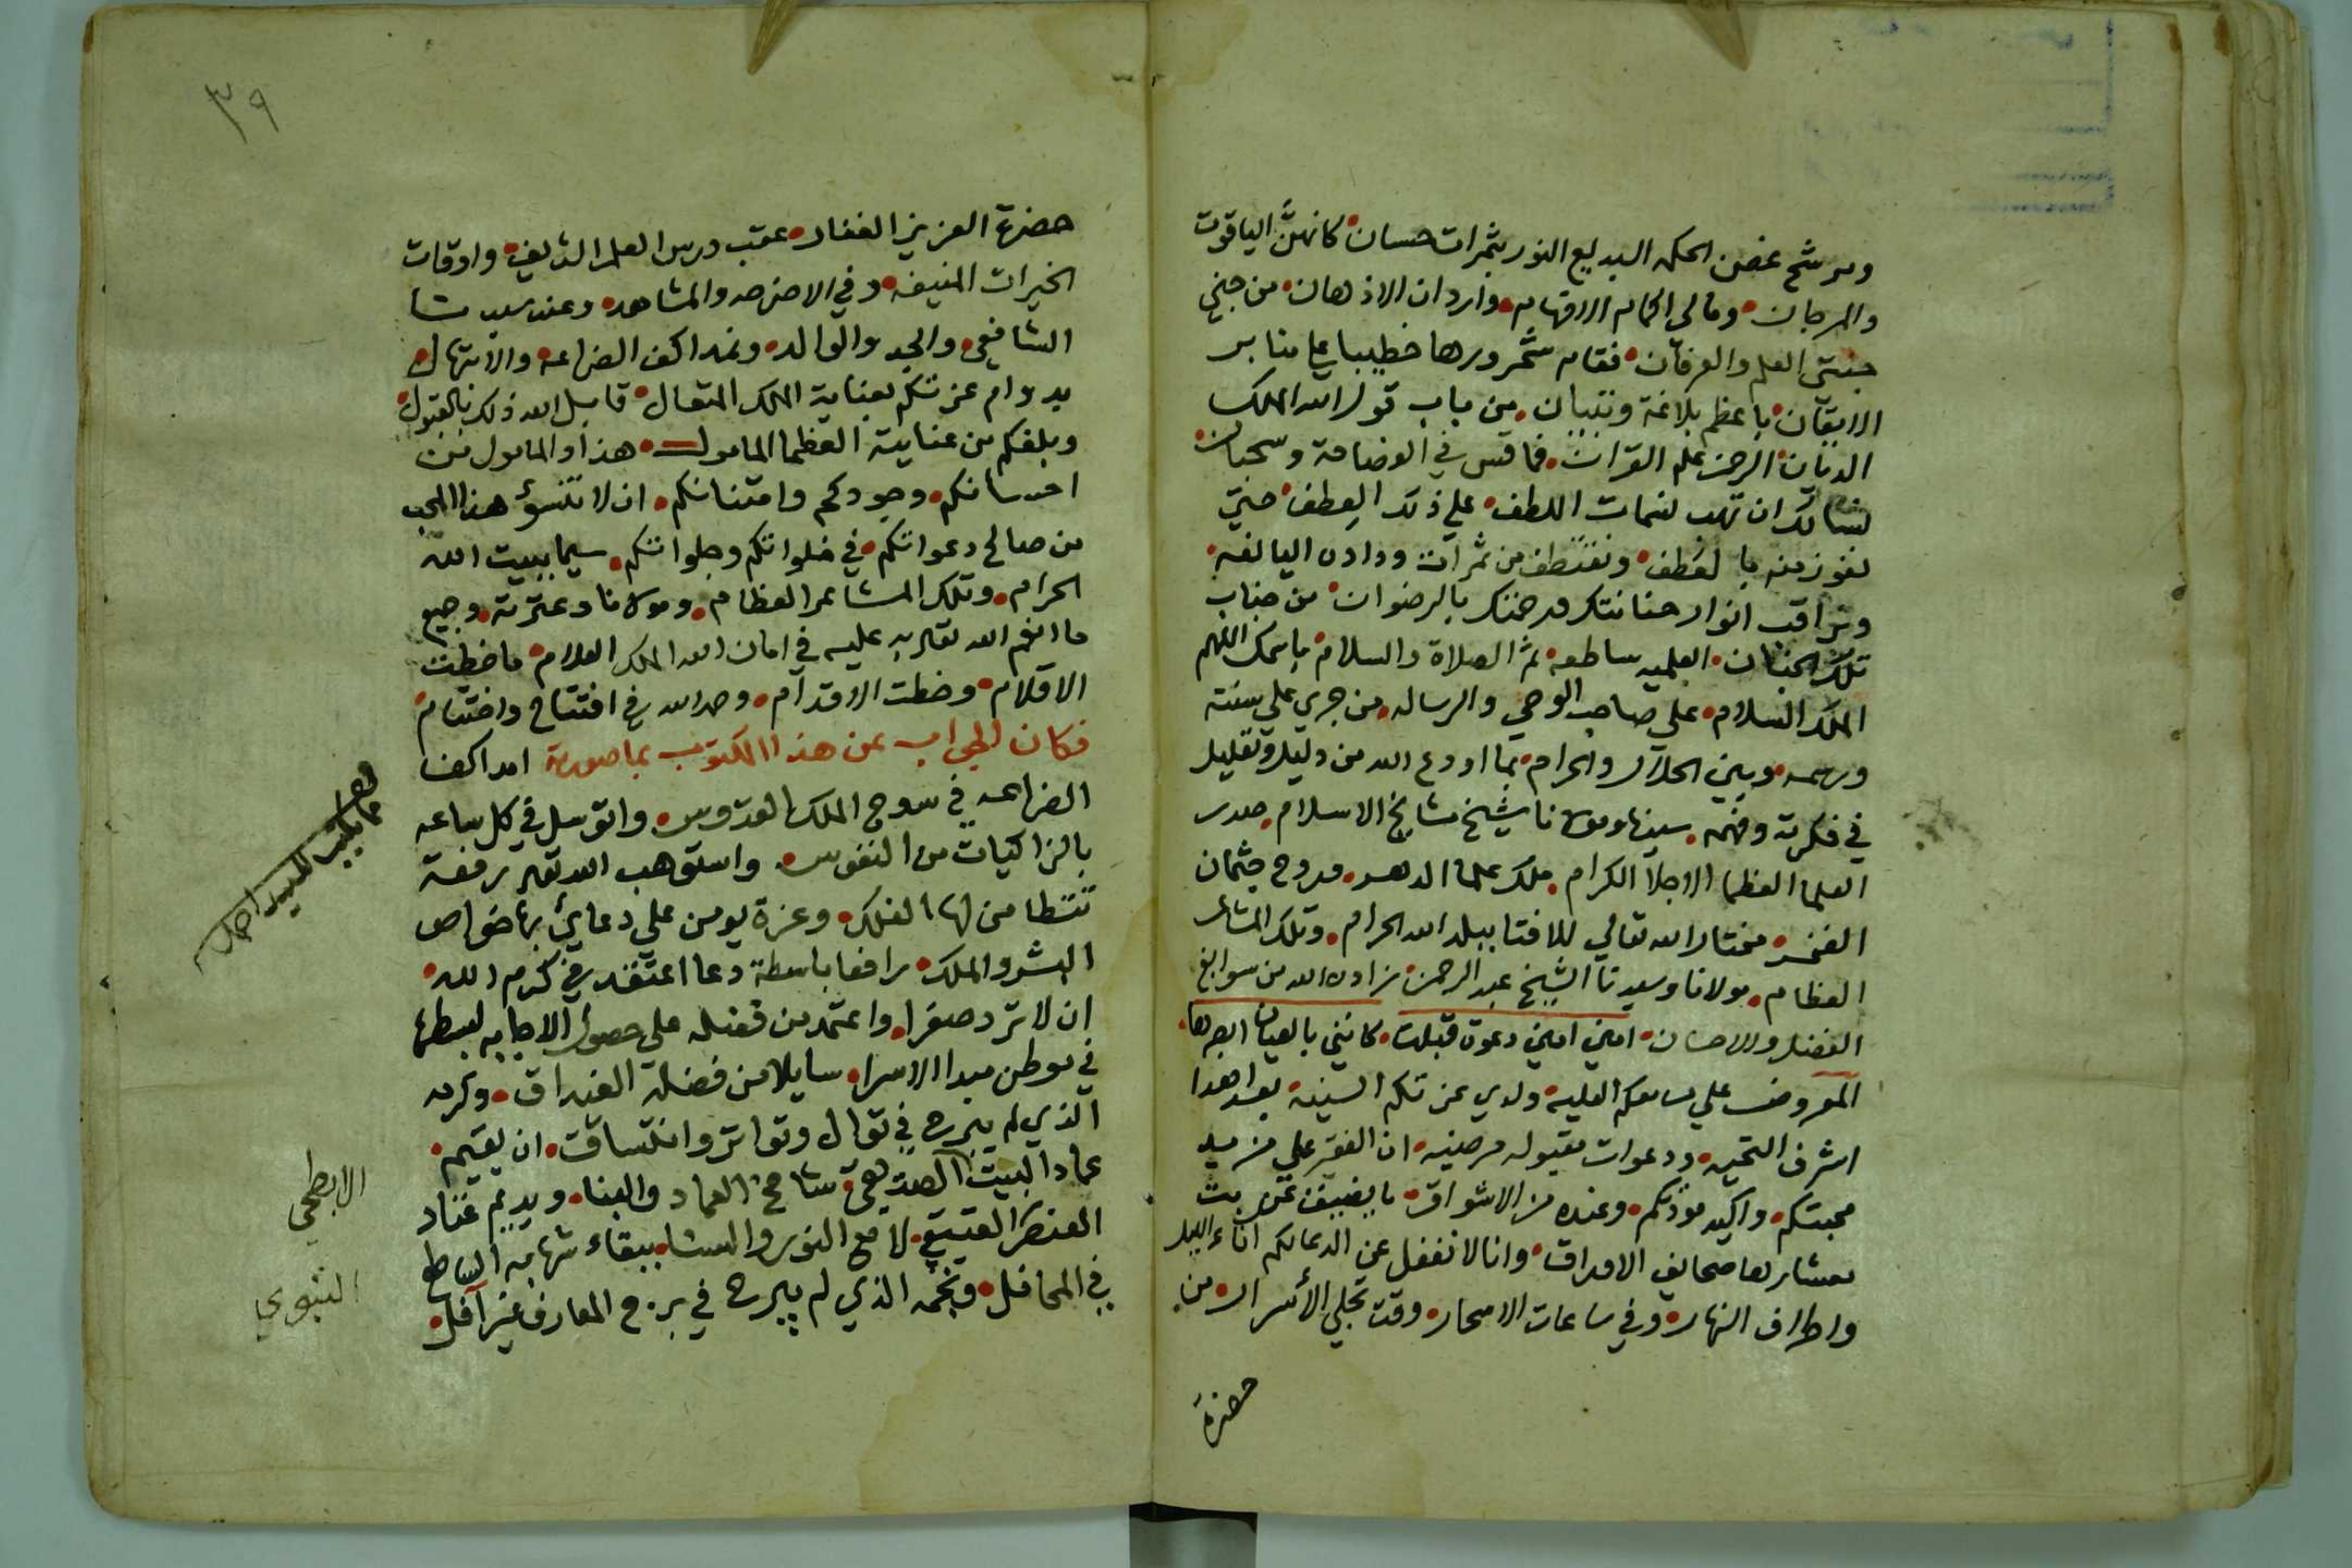 ومرشح غصن الحكم البديع النور بثمرات حسان كانهنَّ الياقوت
والمرجان ومالي اكمام الافهام واردان الاذهان من جني
جنتي العلم والعرفان فقام سحرورها خطيبا علي منابر
الاتقان باعظم بلاغة وتبيان من باب قول الله الملك
الديان الرحمن علم القران فما قس في الفصاحة وسحبان
نسالك ان تهب نسمات اللطف علي ذلك العطف حتي
نفوز منه بالعطف ونقتطف من ثمرات وداده اليانعه
وتراقب انوار حنانتك ورحمتك بالرضوان من جناب
تلك الجنان العلميه ساطعه ثم الصلاة والسلام باسمك اللهم
الملك السلام علي صاحب الوحي والرساله من جري علي سنته
ورسمه وبين الحلال والحرام بما اودع الله من دليل وتعليل
في فكرته وفهمه سيدنا ومولانا شيخ مشايخ الاسلام صدر
العلما العظما الاجلا الكرام ملك علما الدهر وروح جثمان
الفخر مختار الله تعالي للافتا ببلد الله الحرام وتلك المشاعر
العظام مولانا وسيدنا الشيخ عبد الرحمن زاده الله من سوابغ
الفضل والاحسان امين امين دعوة قبلت كانني بالعيان ابصرها
المعروض علي مسامعكم العليه ولدي عزتكم السنيه بعد اهدا
اشرف التحيه ودعوات مقبوله مرضيه ان الفقير علي مزيد
محبتكم واكيد مودتكم وعنده من الاشواق ما يضيق عن بث
معشارها صحايف الاوراق وانا لا نغفل عن الدعا لكم اناء الليل
واطراف النهار وفي ساعات الاسحار وقت تجلي الأسرار من
حضرة
٣٩
حضرة العزيز الغفار عقب درس العلم الشريف واوقات
الخيرات المنيفه وفي الاضرحه والمشاهد وعند سيدنا
الشافعي والجد والوالد ونمد اكف الضراعه والابتهال
بدوام عزتكم بعناية الملك المتعال قابل الله ذلك بالقبول
وبلغكم من عنايته العظما المامول هذا والمامول من
احسانكم وجودكم وامتنانكم ان لا تنسؤ هذا المحب
من صالح دعواتكم في خلواتكم وجلواتكم سيما ببيت الله
الحرام وتلك المشاعر العظام ومولانا وعترته وجميع
ما انعم الله تعالي به عليه في امان الله الملك العلام ما خطت
الاقلام وخطت الاقدام وحمد الله في افتتاح واختتام
فكان الجواب عن هذا المكتوب بما صورته امد اكف
الضراعه في سوح الملك القدوس واتوسل في كل ساعه
بالزاكيات من النفوس واستوهب الله تعالي رفعة
تتطامن لها الفلك وعزة يومن علي دعاي بها خواص
البشر والملك رافعا باسطة دعا اعتقد في كرم الله
ان لا ترد صفرا واعتمد من فضله علي حصول الاجابه لبسطها
في موطن مبدا الاسرا سايلا من فضله الغيداق وكرمه
الذي لم يبرح في توال وتواتر واتساق ان يقيم
عماد البيت الصديقي شامخ العماد والبنا ويديم عتاد
العنصر العتيقي لامع النور والسنا ببقاء شهابه الساطع
في المحافل ونجمه الذي لم يبرح في برج المعارف غير آفل
الابطحي
النبوي